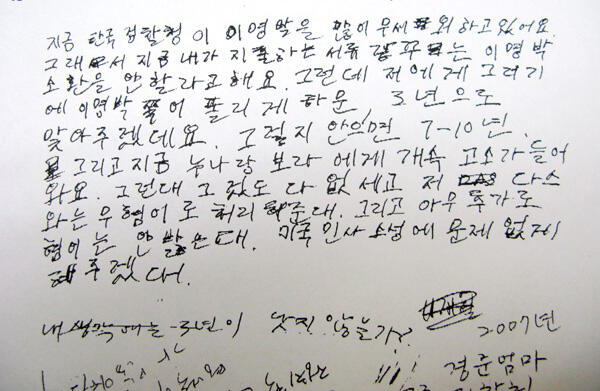 지금 한국 검찰청이 이명박을 많이 무서워하고 있어요.
그래서 지금 내가 지출하는 서류 가꾸는 이명박
소환을 안 할라고 해요. 그런데 저에게
이명박 풀리게 하문, 3년으로
맞아주겠데요. 그렇지 안으면 7-10년.
그리고 지금 누나랑 보라에게 개속 고소가 들어
와요. 그런대 그것도 다 없세고 저 다스
와는 무협이로 처리 준대. 그리고 아무 추가로
혐이는 안 받는대. 미국 인사 수성에 문제 없게
해주겠대.
내 생각에는 3년이 낫지 않을가?
2007년
경준엄마